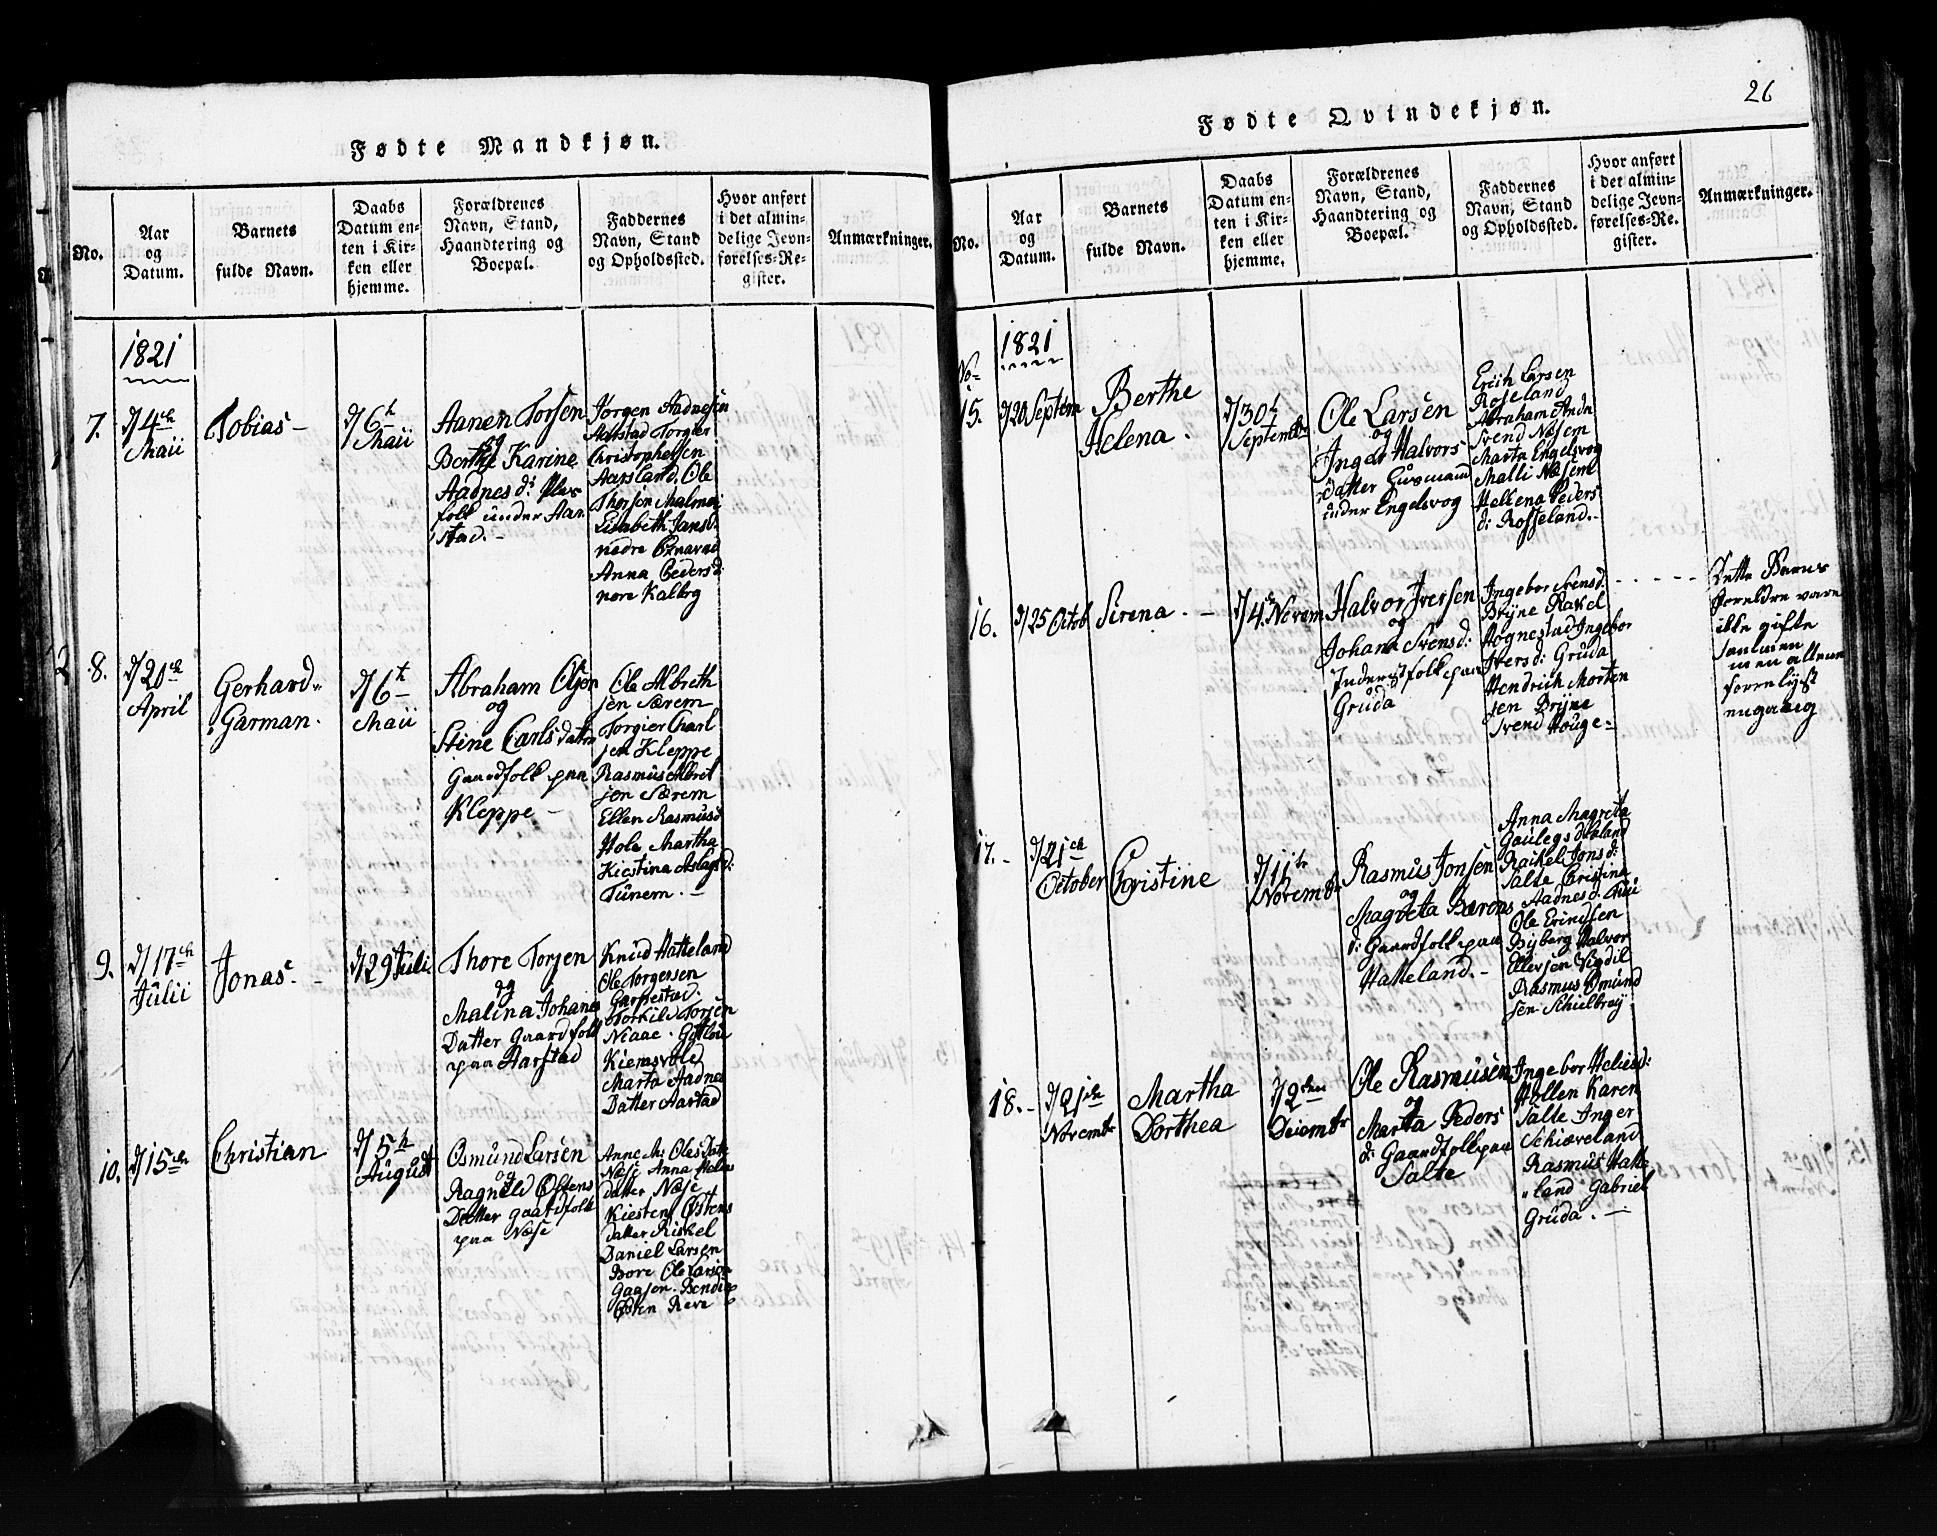 Fødte Mandkjøn.
No.
Aar
og
Datum.
Barnets
fulde Navn.
Daabs
Datum en-
ten i Kir-
ken eller
hjemme.
Forældrenes
Navn, Stand,
Haandtering og
Boepæl.
Faddernes
Navn, Stand
og Opholdssted.
Hvor anført
i det almin-
delige Jevn-
førelses-Re-
gister.
Anmærkninger.
1821
7.
d/4de
Maii
Tobias-
d/6t
Maii
Aanen Torsen
og
Berthe Karine
Aadnes d:
folk under Aar
stad.-
Jørgen Aadnesen
Aarstad Torgier
Christophersen
Aarsland. Ole
Thorsen Malmei
Lisabeth Jansd:
nedre
Anna Pedersd:
nore Kalbrg
8.
d/20de
April
Gerhard
Garman.
d/6t
Maii
Abraham Olsen
og
Stine Carlsdatter
Gaardfolk paa
Kleppe-
Ole Albreth
sen Særem
Torgier Charl
sen Kleppe
Rasmus Albret
sen Særem
Ellen Rasmusd
Hole Martha
Kiestina Aslagsd:
Tunem.-
9.
d/17de
Julii
Jonas.-
d/29 Juli.
Thore Torsen
og
Malina Johanes
Datter Gaardfolk
paa Aarstad
Knud Hatteland
Ole Torgersen
Garpestad.
Torkild Torsen
Niaae.
Marta Aadnes
Datter Aastad
10.
d/15de
Christian
d/5t
August
Osmund Larsen
og
Ragnild Østens
Datter gaardfolk
paa Næse
Anne M: Oles Datt
Næse Anna Helens
datter Næse
Kiesten Østens
datter Riskel
Daniel Larsen
Bore Ole Larsen
Østen Reve
Fødte Qvindekjøn.
26
No.
Aar
og
Datum.
Barnets
fulde Navn.
Daabs
Datum en-
ten i Kir-
ken eller
hjemme.
Forældrenes
Navn, Stand,
Haandtering og
Boepæl.
Faddernes
Navn, Stand
og Opholdssted.
Hvor anført
i det almin-
delige Jevn-
førelses-Re-
gister.
Anmærkninger.
1821
No-
15.
d/20 Septem
Berthe
Helena.
d/30t
Septembr
Ole Larsen
og
Inger Halvors
datter Huusmand
under Engelsvog
Erich Larsen
Roseland
Abraham Andr
Svend Næsem
Marta Engelsvog
Malli Næsem
Hellena Peders
d: Rosseland.-
16.
d/25 Octob
Serena.-
d/4de Novem
Halvor Iversen
og
Johana Svensd:
Inderstfolk paa
Gruda
Ingebor Svensd.
Bryne Rakel
Hognestad Ingebor
Iversd: Gruda
Hendrich Morten
sen Bryne
Svend Houge-
Dette Barns
Foreldre vare
ikke gifte
sammen
men allene
forrelyst
engaaig
17.-
d/21de
October
Christine
d/11te
Novembr
Rasmus Jonsen
og
Magreta Bærens
d: Gaardfolk paa
Hatteland.-
Anna Magreta
Rachel Jonsd:
Salte Cristina
Aadnesd. Thue
Ole Erindsen
Byberg Halvor
Ellevsen Vigdil
Rasmus Omund
sen Schielbrey
18.-
d/21de
Novembr
Martha
Dorthea
d/2den
Decembr
Ole Rasmusen
og
Marta Peders
d: Gaardfolk paa
Salte
Ingebor Heliesd:
Hollen Karen
Salte Inger
Schiæveland
Rasmus Hatte
land Gabriel
Gruda.-